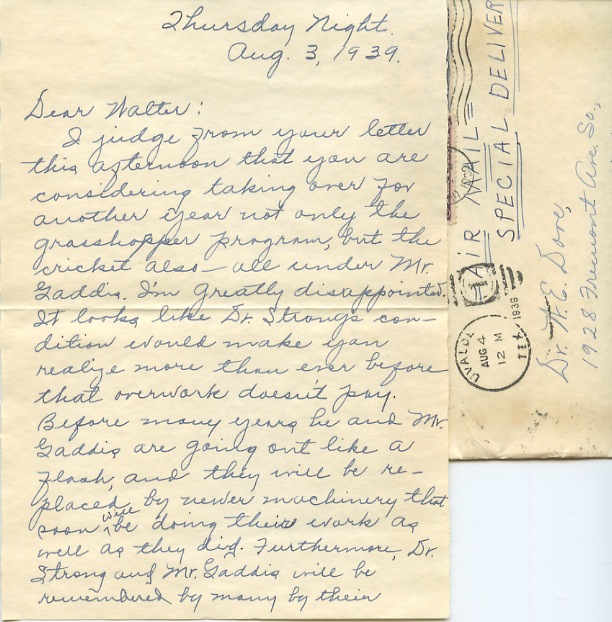 Thursday Night.
Aug. 3, 1939.
Dear Walter:
I judge from your letter
this afternoon that you are
considering taking over for
another year not only the
grasshopper program, but the
cricket also — all under Mr.
Gaddis. I'm greatly disappointed.
It looks like Dr. Strong's con-
dition would make you
realize more than ever before
that overwork doesn't pay.
Before many years he and Mr.
Gaddis are going out like a
flash, and they will be re-
placed by newer machinery that
soon will be doing their work as
well as they did. Furthermore, Dr.
Strong and Mr. Gaddis will be
remembered by many by their
AIR MAIL
SPECIAL DELIVER
UVALDE
AUG 4
12 M
1939
TEX.
Dr. W. E. Dove,
1928 Fremont Ave. So.,